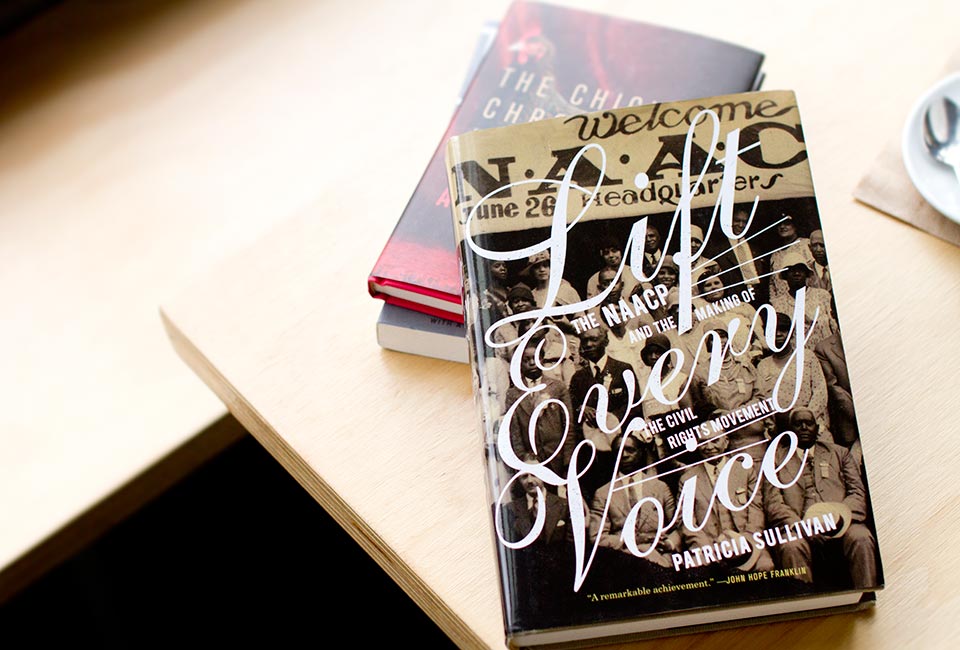 THE
welcome
N·A·A·C
June 26
Headquarters
Lift
THE NAACP
AND THE MAKING OF
Every
THE CIVIL
RIGHTS MOVEMENT
Voice
PATRICIA SULLIVAN
"A remarkable achievement." —JOHN HOPE FRANKLIN